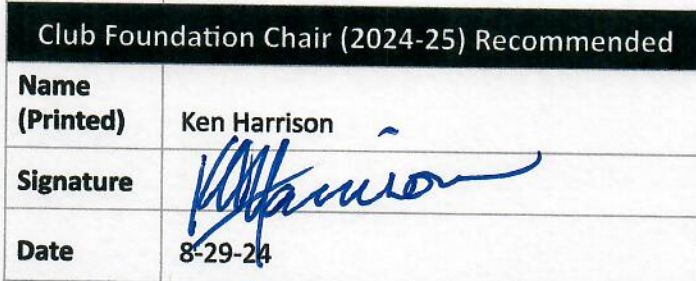 Club Foundation Chair (2024-25) Recommended
Name
(Printed)
Ken Harrison
Signature
KHarrison
Date
8-29-24